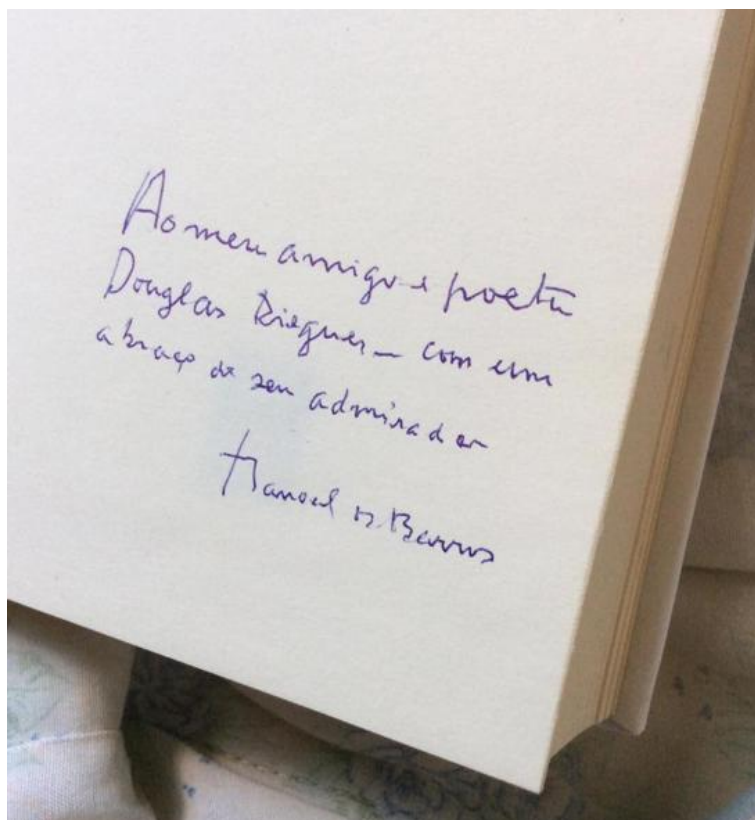 Ao meu amigo e poeta
Douglas Diegues – com um
abraço do seu admirador
Manoel de Barros